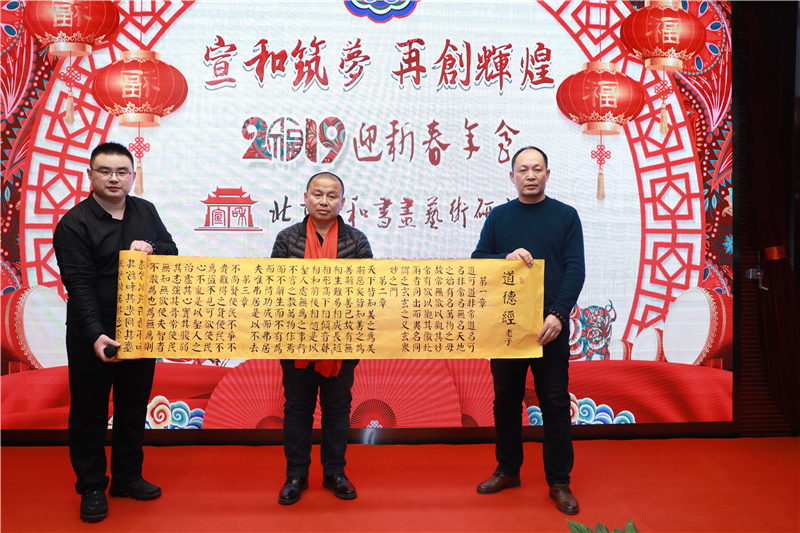 宣和筑夢 再創輝煌
2019迎新春年会
宣和
北京 和書畫藝術研
福
福
福
福
道德經 老子
第一章
道可道非常道名可
名非常名無名天地
之始有名萬物之母
故常無欲以觀其妙
常有欲以觀其徼此
兩者同出而異名同
謂之玄玄之又玄衆
妙之門
第二章
天下皆知美之為美
斯惡矣皆知善之為
善斯不善已故有無
相生難易相成長短
相形高下相傾音聲
相和前後相隨是以
聖人處無為之事行
不言之教萬物作焉
而不辭生而不有為
而不恃功成而弗居
夫唯弗居是以不去
第三章
不尚賢使民不爭不
貴難得之貨使民不
為盜不見可欲使民
心不亂是以聖人之
治虛其心實其腹弱
其志強其骨常使民
無知無欲使夫智者
不敢為也為無為則
其紛和其光同其塵